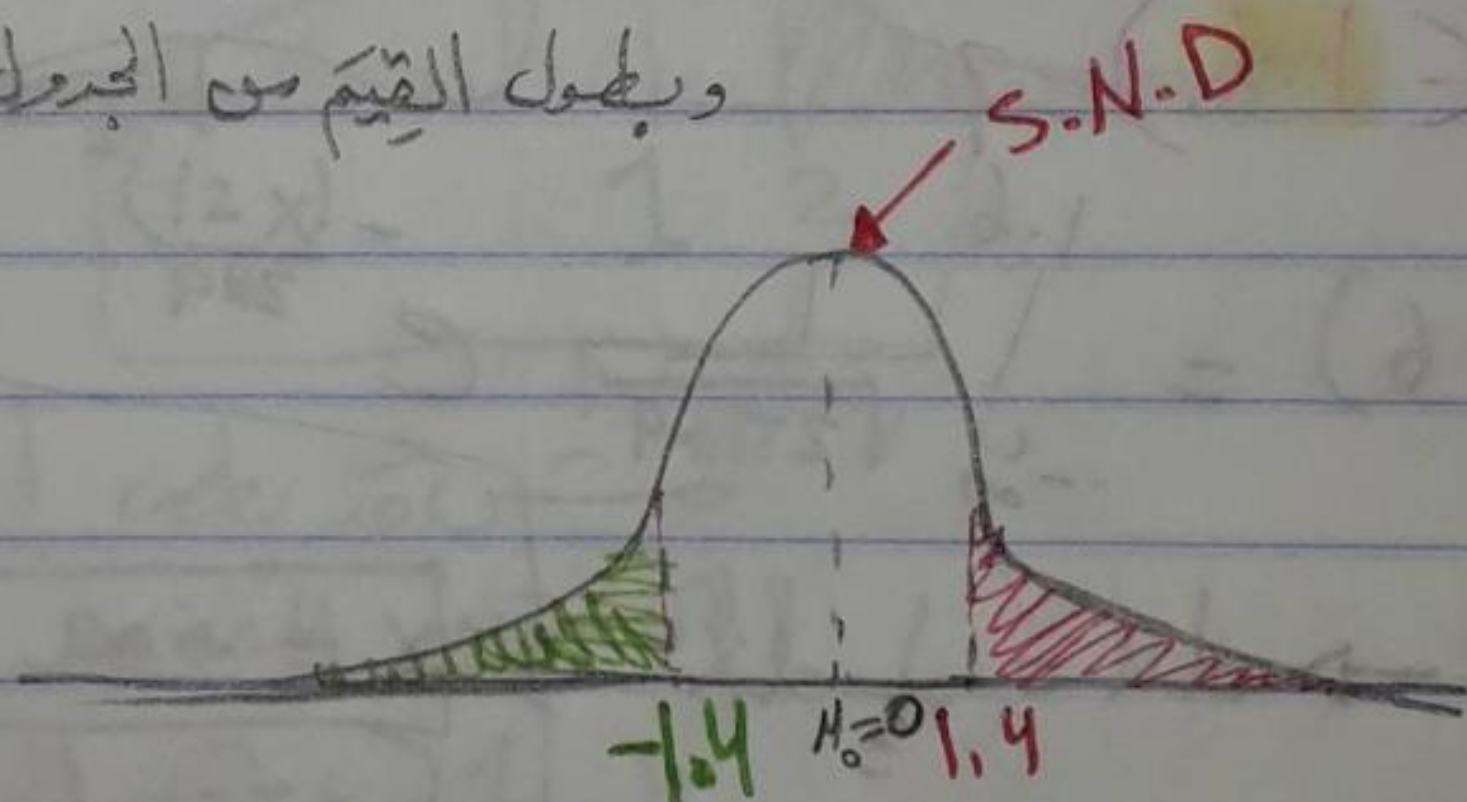 وبطول القِيَمَ من الجدول
S.N.D
-1.4
μ₀=0
1.4